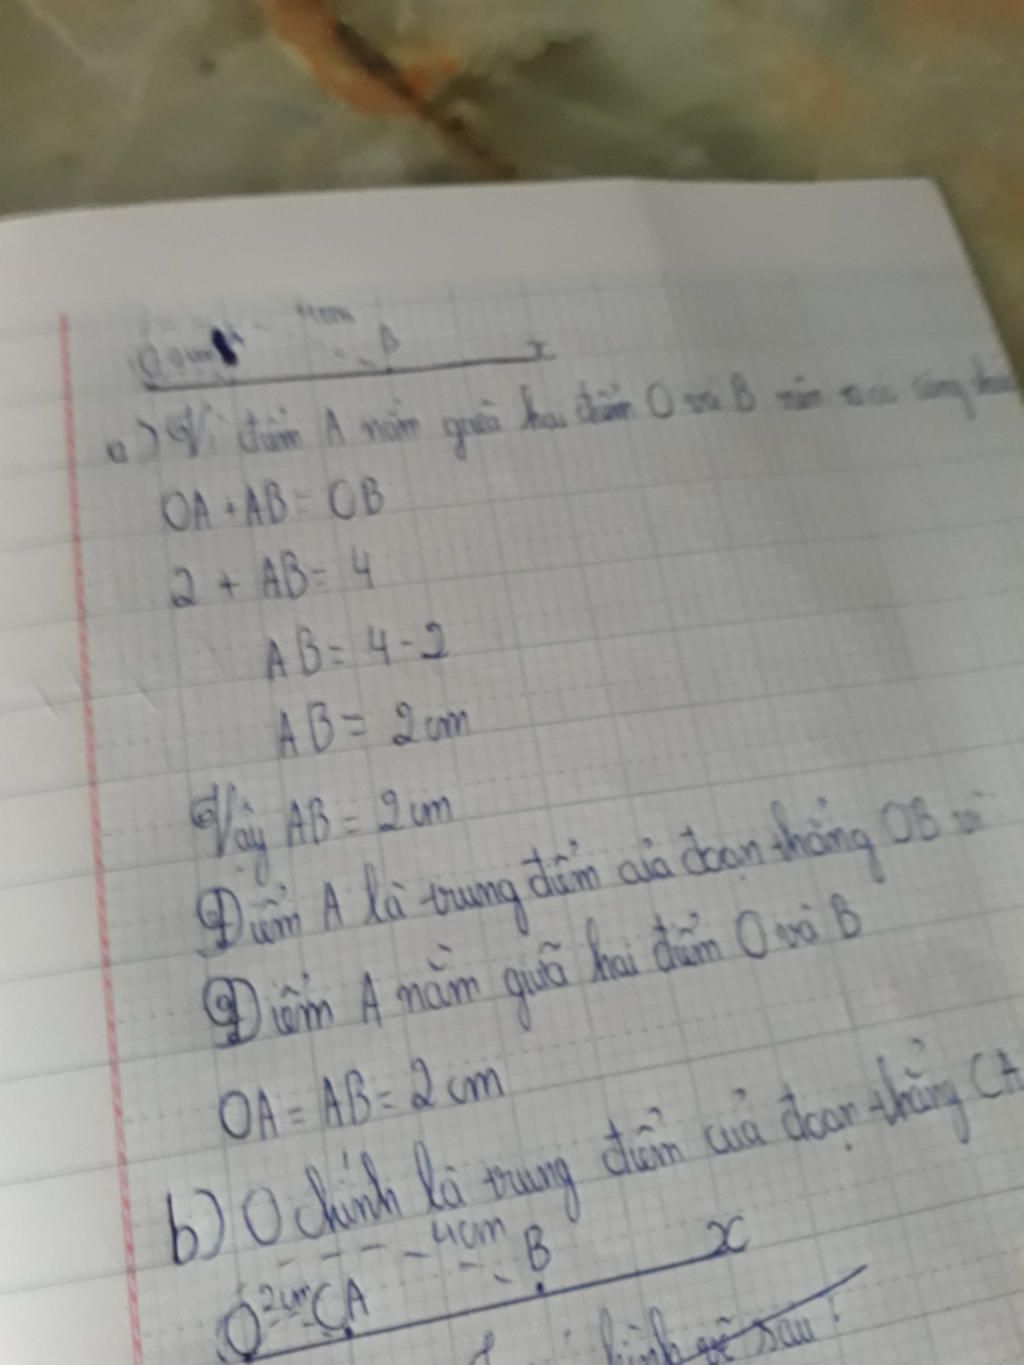 4cm
B
x
a) Vì điểm A nằm giữa hai điểm O và B nên ta có
OA + AB = OB
2 + AB = 4
AB = 4 - 2
AB = 2 cm
Vậy AB = 2 cm
Điểm A là trung điểm của đoạn thẳng OB vì
Điểm A nằm giữa hai điểm O và B
OA = AB = 2 cm
b) O chính là trung điểm của đoạn thẳng CA
4cm
O 2cm C A B x
hình vẽ sau: